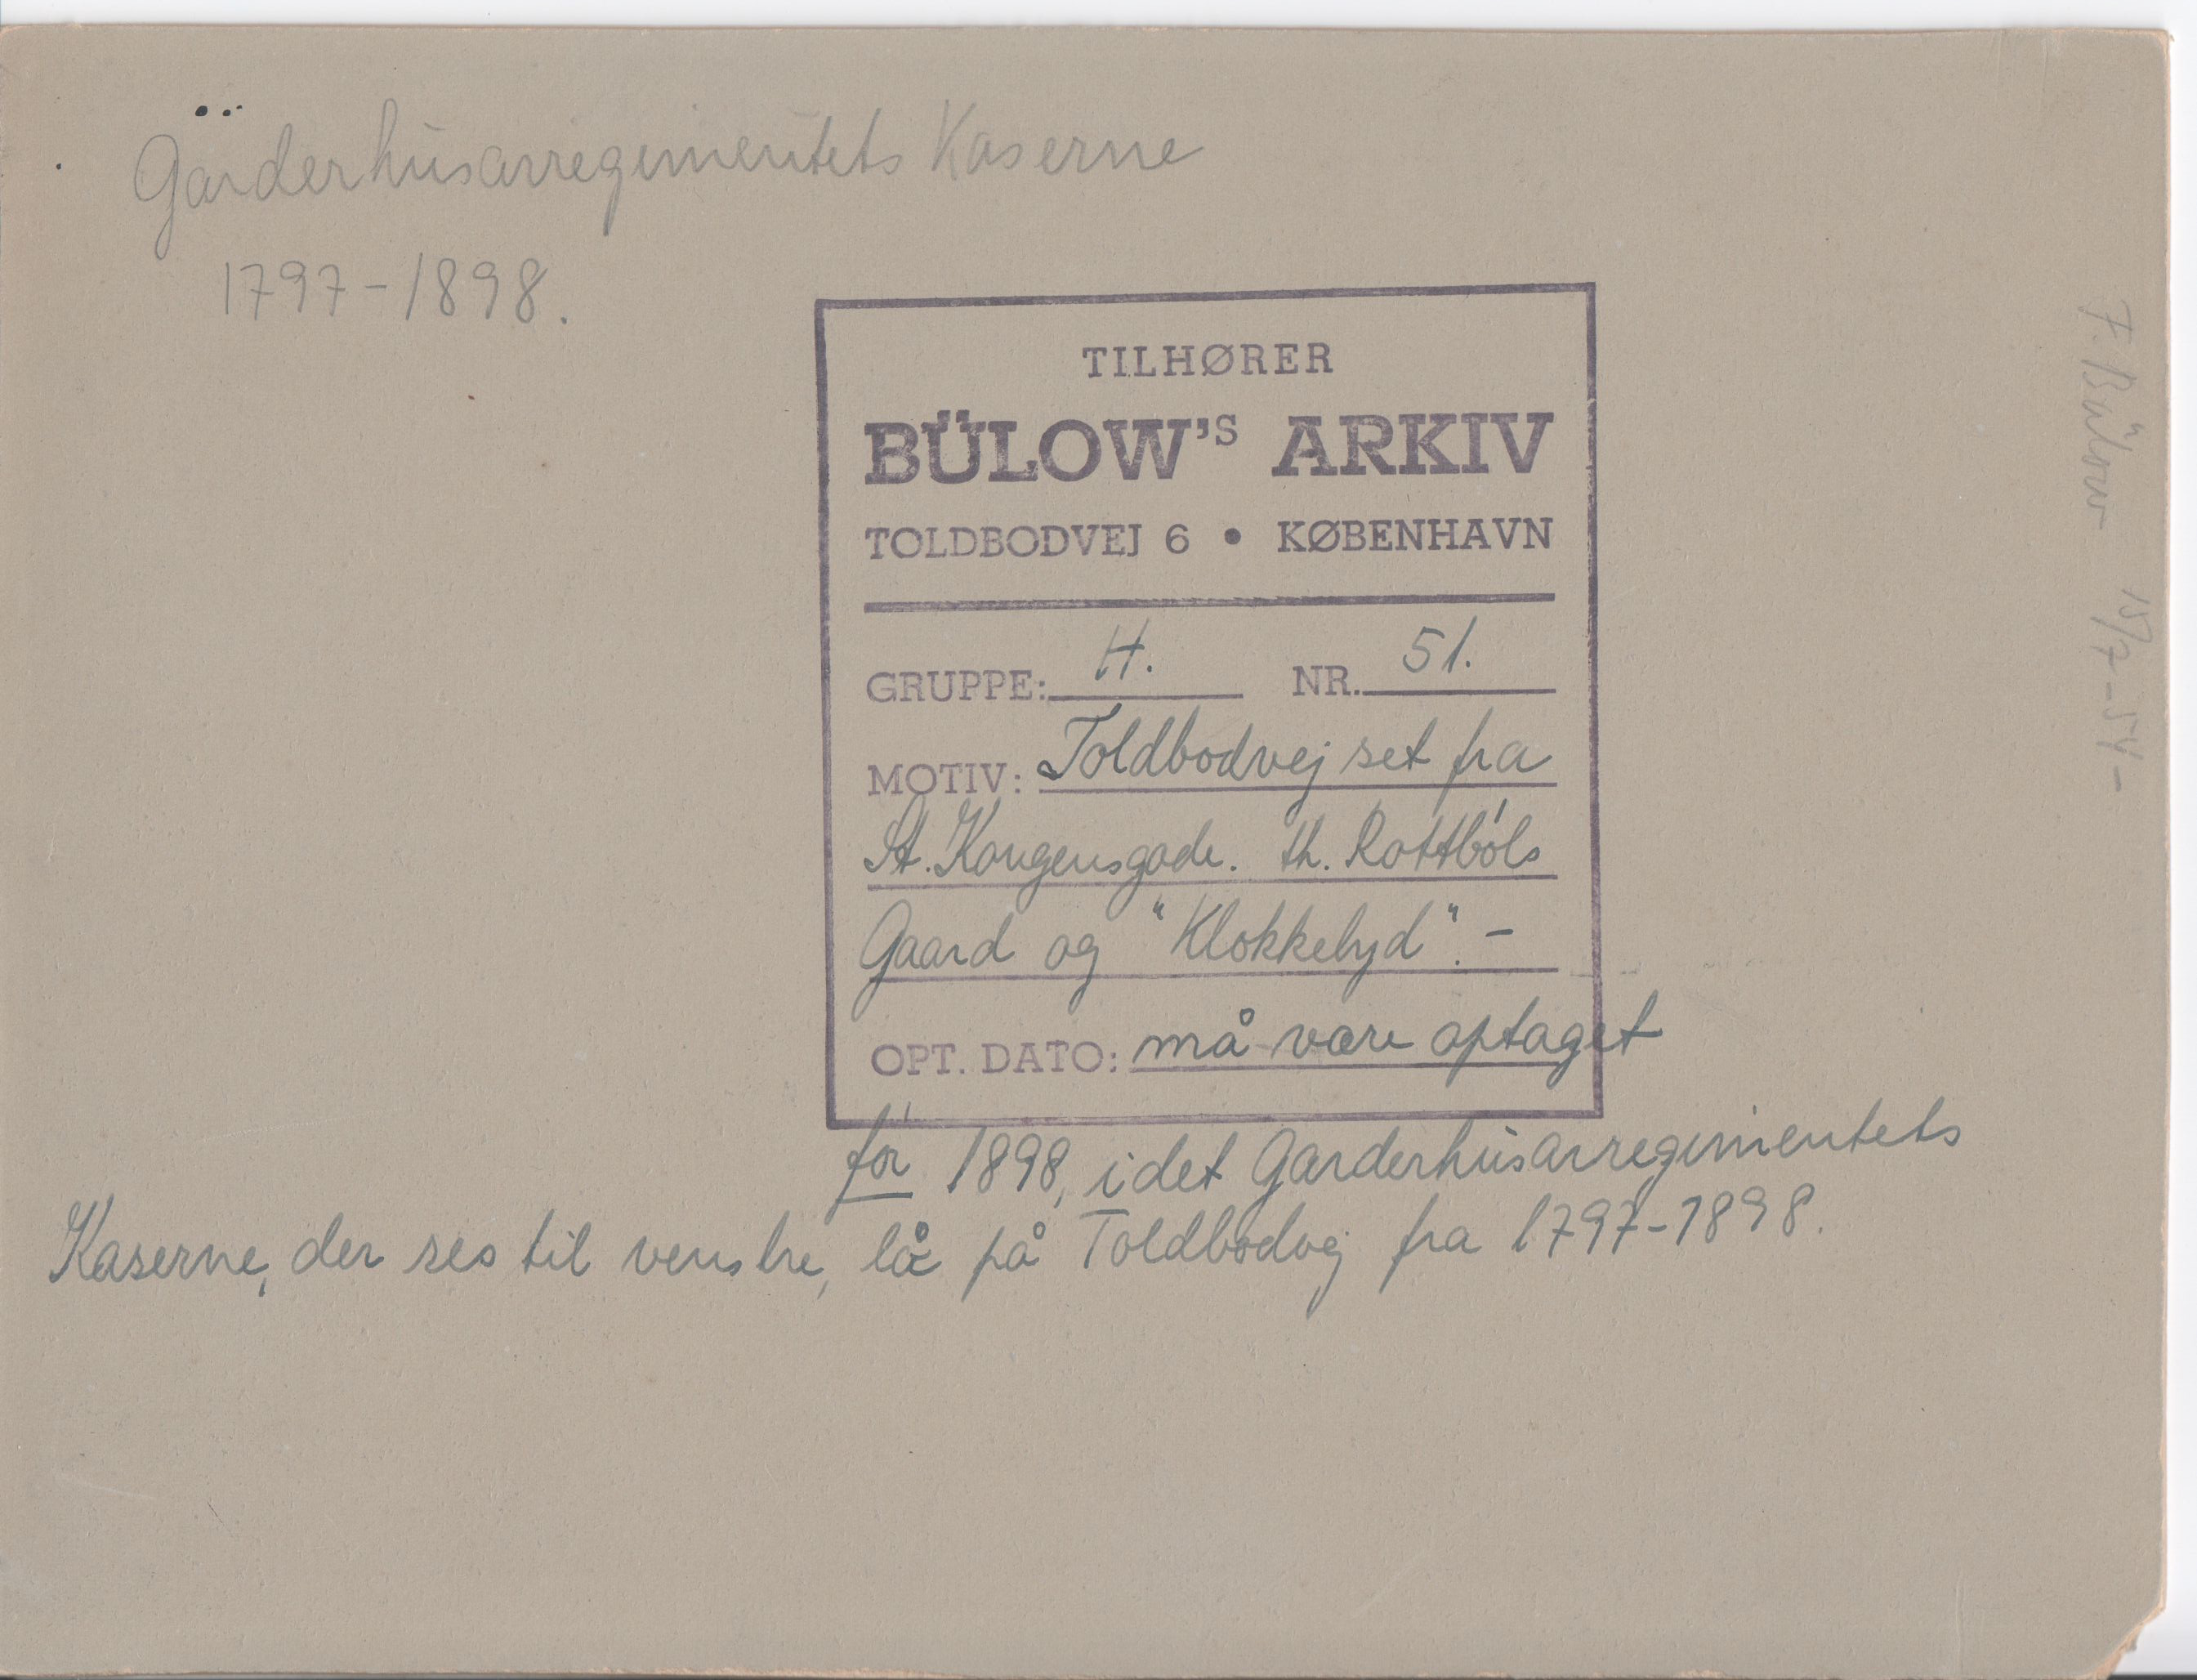 Garderhusarregimentets Kaserne
1797-1898.
TILHØRER
BÜLOW'S ARKIV
TOLDBODVEJ 6 • KØBENHAVN
GRUPPE: H. NR. 51.
MOTIV: Toldbodvej set fra
St. Kongensgade. th. Rottbøls
Gaard og "Klokkelyd". -
OPT. DATO: må være optaget
før 1898, idet Garderhusarregimentets
Kaserne, der ses til venstre, lå på Toldbodvej fra 1797-1898.
F. Bülow 15/7-54-